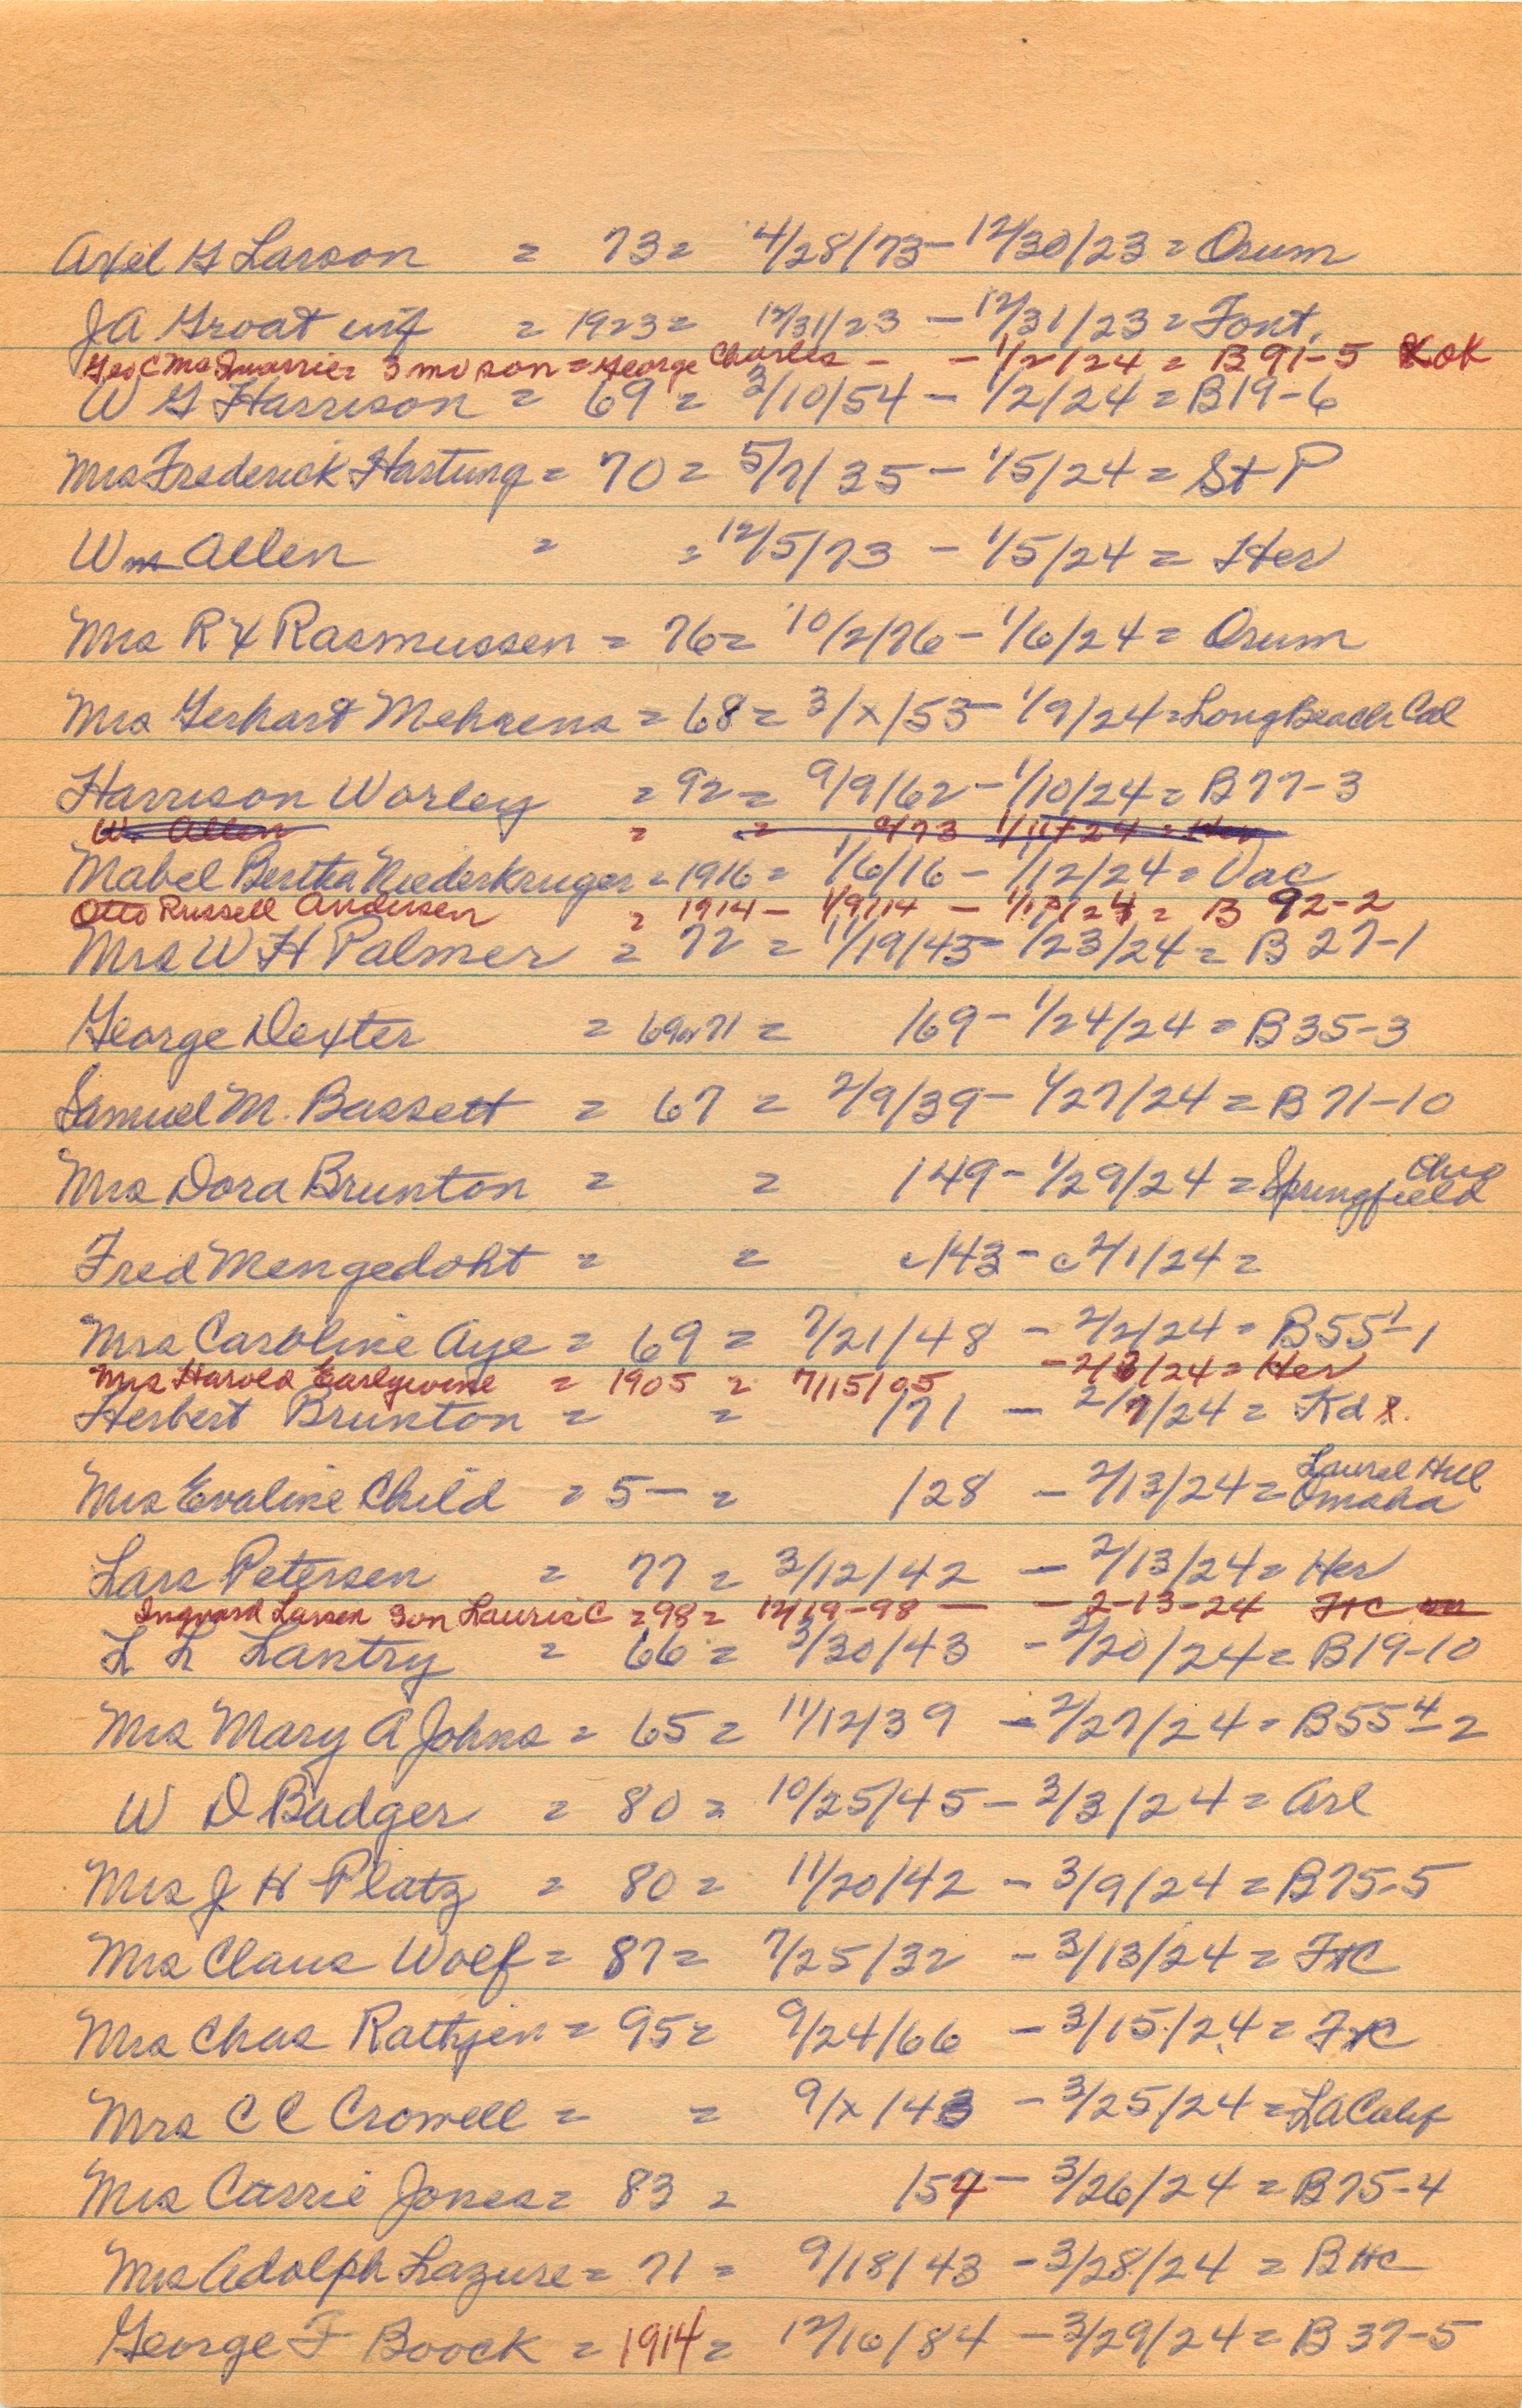 Axel G Larson = 73 = 4/28/73 - 12/30/23 = Orum
JA Groat inf = 1923 = 12/31/23 - 12/31/23 = Font.
Geo C McQuarrie = 3 mo son = George Charles - - 1/2/24 = B 91-5 OK
W G Harrison = 69 = 3/10/54 - 1/2/24 = B19-6
Mrs Frederick Hartung = 70 = 5/7/35 - 1/5/24 = St P
Wm Allen = = 12/5/73 - 1/5/24 = Her
Mrs R X Rasmussen = 76 = 10/2/76 - 1/6/24 = Orum
Mrs Gerhart Mehrens = 68 = 3/x/53 - 1/9/24 = Long Beach Cal
Harrison Worley = 92 = 9/9/62 - 1/10/24 = B77-3
W. Allen = = c/73 1/11/24 = Her
Mabel Bertha Niederkruger = 1916 = 1/6/16 - 1/12/24 = Vac
Otto Russell Andersen = 1914 - 1/9/14 - 1/17/24 = B 92-2
Mrs W H Palmer = 72 = 11/19/45 - 1/23/24 = B 27-1
George Dexter = 69 or 71 = /69 - 1/24/24 = B35-3
Samuel M. Bassett = 67 = 2/9/39 - 1/27/24 = B71-10
Mrs Dora Brunton = = /49 - 1/29/24 = Springfield Ohio
Fred Mengedoht = = c/43 - c 2/1/24 =
Mrs Caroline Aye = 69 = 7/21/48 - 2/2/24 = B55 1-1
Mrs Harold Earlywine = 1905 = 7/15/05 - 2/3/24 = Her
Herbert Brunton = = /71 - 2/7/24 = Kd
Mrs Evaline Child = 5- = /28 - 2/13/24 = Laurel Hill Omaha
Lars Petersen = 77 = 3/12/42 - 2/13/24 = Her
Ingvard Larsen son Lauris C = 98 = 12/19-98 - - 2-13-24 FtC
L L Lantry = 66 = 3/30/43 - 2/20/24 = B19-10
Mrs Mary A Johns = 65 = 11/12/39 - 2/27/24 = B55 4-2
W D Badger = 80 = 10/25/45 - 3/3/24 = Arl
Mrs J H Platz = 80 = 11/20/42 - 3/9/24 = B75-5
Mrs Claus Wolf = 87 = 7/25/32 - 3/13/24 = FtC
Mrs Chas Rathjen = 95 = 9/24/66 - 3/15/24 = FtC
Mrs C C Crowell = = 9/x/43 - 3/25/24 = LA Calif
Mrs Carrie Jones = 83 = /57 - 3/26/24 = B75-4
Mrs Adolph Lazure = 71 = 9/18/43 - 3/28/24 = BHC
George F Boock = 1914 = 12/16/84 - 3/29/24 = B 37-5